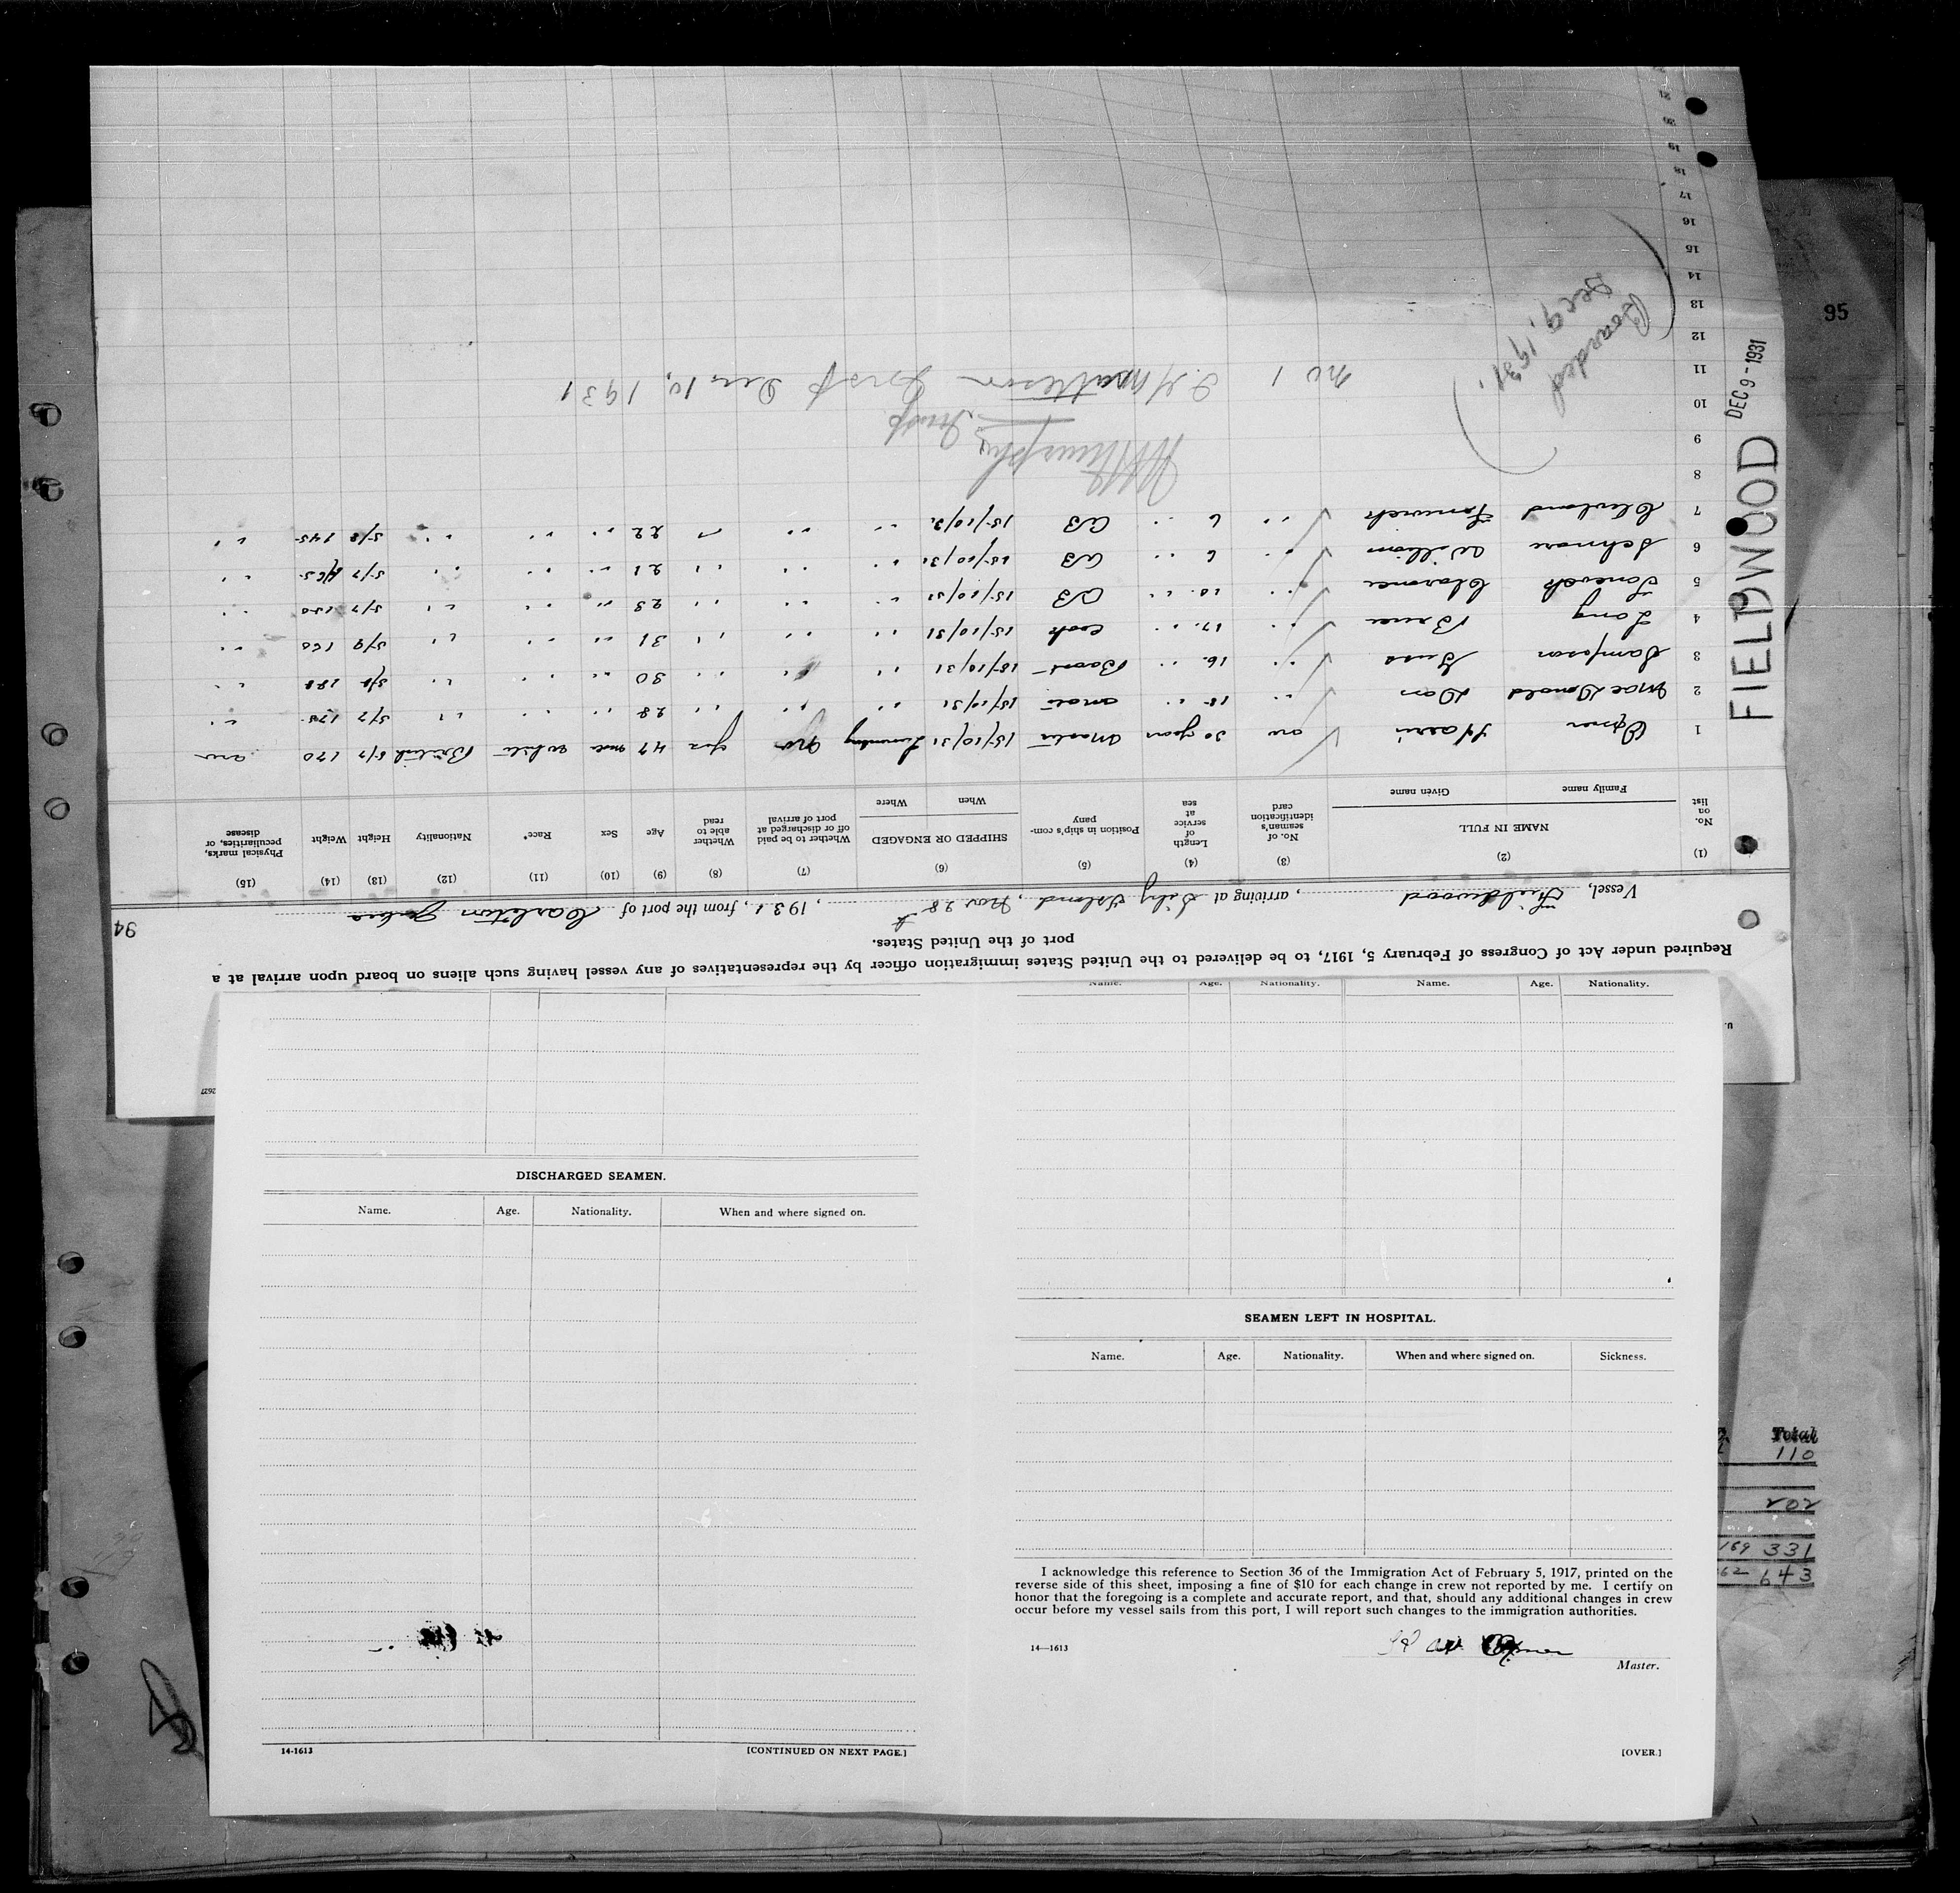 Required under Act of Congress of February 5, 1917, to be delivered to the United States immigration officer by the representatives of any vessel having such aliens on board upon arrival at a
port of the United States.
94
Vessel, Fieldwood, arriving at City Island, Nov 28, 1931, from the port of Carleton
(1) (2) (3) (4) (5) (6) (7) (8) (9) (10) (11) (12) (13) (14) (15)
No. on list NAME IN FULL Family name Given name No. of seaman's identification card Length of service at sea Position in ship's company SHIPPED OR ENGAGED When Where Whether to be paid off or discharged at port of arrival Whether able to read Age Sex Race* Nationality Height Weight Physical marks, peculiarities, or disease
1 30 years Master 15/10/31 no yes 47 male white British 5/7 170
2 MacDonald Dan 15 " mate 15/10/31 " " " 28 " " " 5/7 175 "
3 Sampson 16 " 15/10/31 " " " 30 " " " 5/8 "
4 Long Bruce 17 " Cook 15/10/31 " " " 31 " " " 5/9 160 "
5 Clarence 10 " AB 15/10/31 " " " 23 " " " 5/7 150 "
6 Schnare William 6 " AB 15/10/31 " " " 21 " " " 5/7 165 "
7 6 " AB 15/10/31 " " " 22 " " " 5/8 145 "
8
9
10
11
12
13
14
15
16
17
18
19
20
21
Insp.
No 1 Insp Dec 10, 1931
Boarded
Dec 9, 1931.
FIELDWOOD DEC 9 - 1931
95
DISCHARGED SEAMEN.
Name. Age. Nationality. When and where signed on.
14-1613 [CONTINUED ON NEXT PAGE.]
Name. Age. Nationality. Name. Age. Nationality.
SEAMEN LEFT IN HOSPITAL.
Name. Age. Nationality. When and where signed on. Sickness.
I acknowledge this reference to Section 36 of the Immigration Act of February 5, 1917, printed on the
reverse side of this sheet, imposing a fine of $10 for each change in crew not reported by me. I certify on
honor that the foregoing is a complete and accurate report, and that, should any additional changes in crew
occur before my vessel sails from this port, I will report such changes to the immigration authorities.
14—1613
Master.
[OVER.]
Total
110
202
169 331
62 643